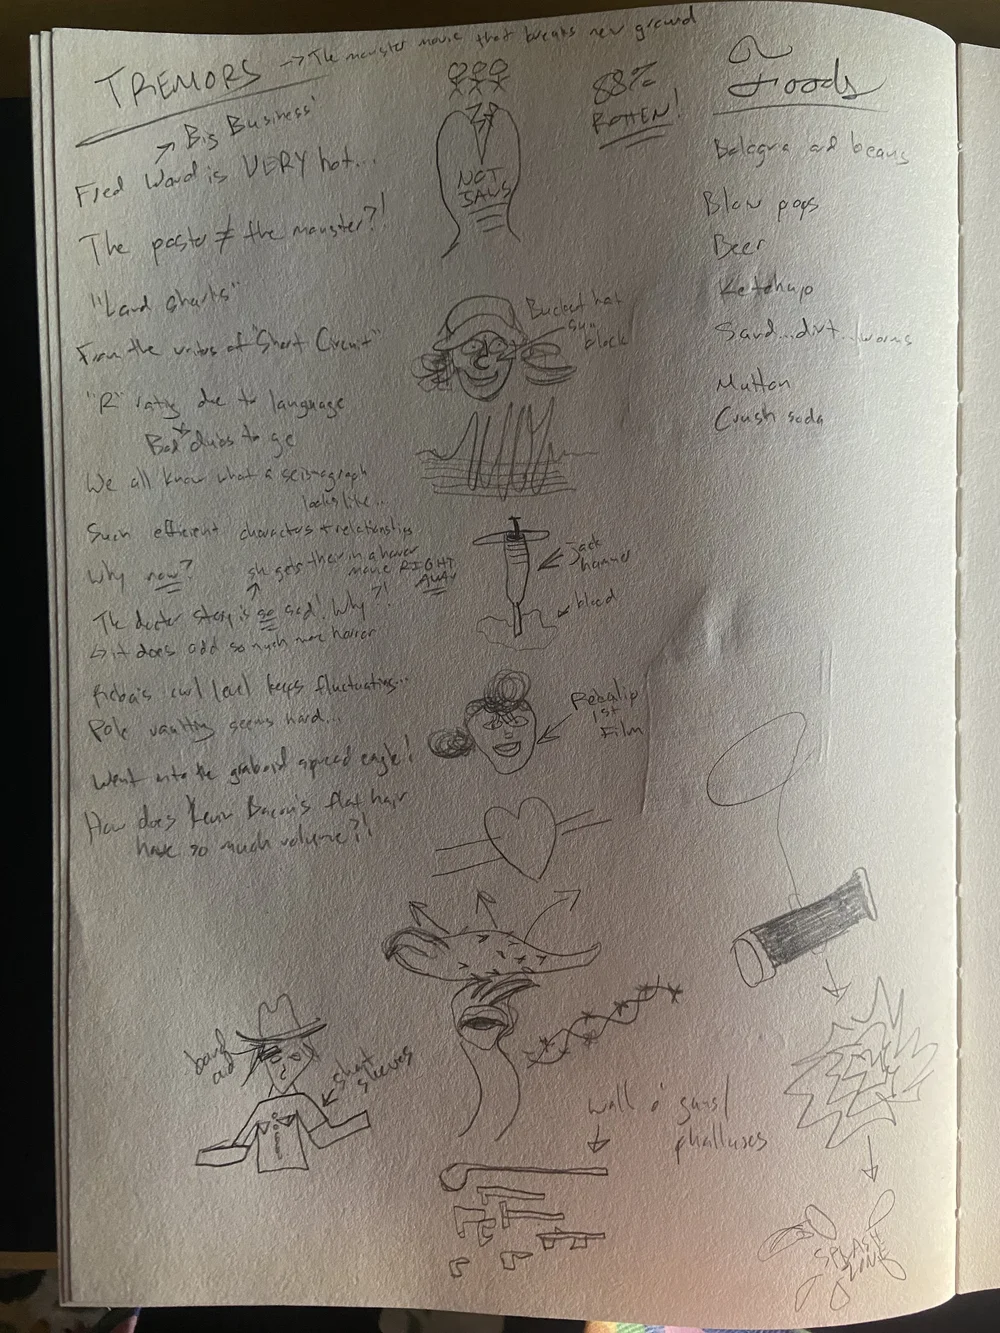 TREMORS → The monster movie that breaks new ground
→ Big Business'
Fred Ward is VERY hot...
The poster ≠ the monster?!
"Land sharks"
From the writers of "Short Circuit"
"R" rating due to language
Bad dubs to go
We all know what a seismograph
looks like...
Such efficient characters + relationships
Why now?
she gets ther in a horror
movie RIGHT
AWAY
The doctor story is so sad! Why?!
↳ it does add so much more horror
Reba's curl level keeps fluctuating...
Pole vaulting seems hard...
Went into the graboid spread eagle!
How does Kevin Bacon's flat hair
have so much volume?!
NOT
JAWS
Bucket hat
sun
block
jack
hammer
blood
Reba in
1st
Film
band
aid
short
sleeves
wall o' guns/
phalluses
88%
ROTTEN!
Foods
Bologna and beans
Blow pops
Beer
Ketchup
Sand...dirt...worms
Mutton
Crush soda
SPLASH
ZONE